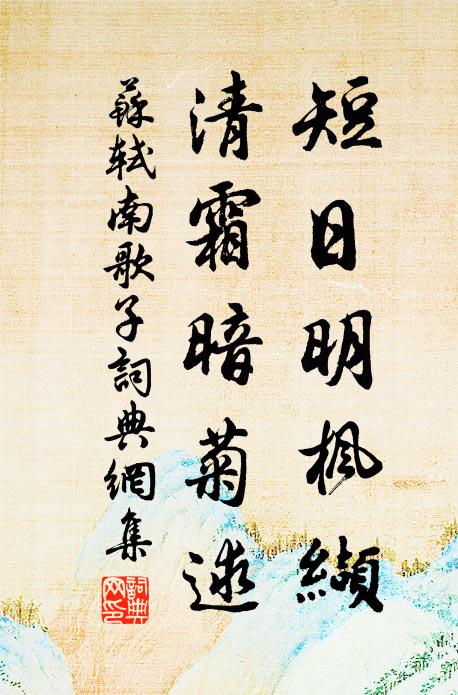 短日明楓纈
清霜暗菊逑
蘇軾南歌子詞典網集
詞典網印